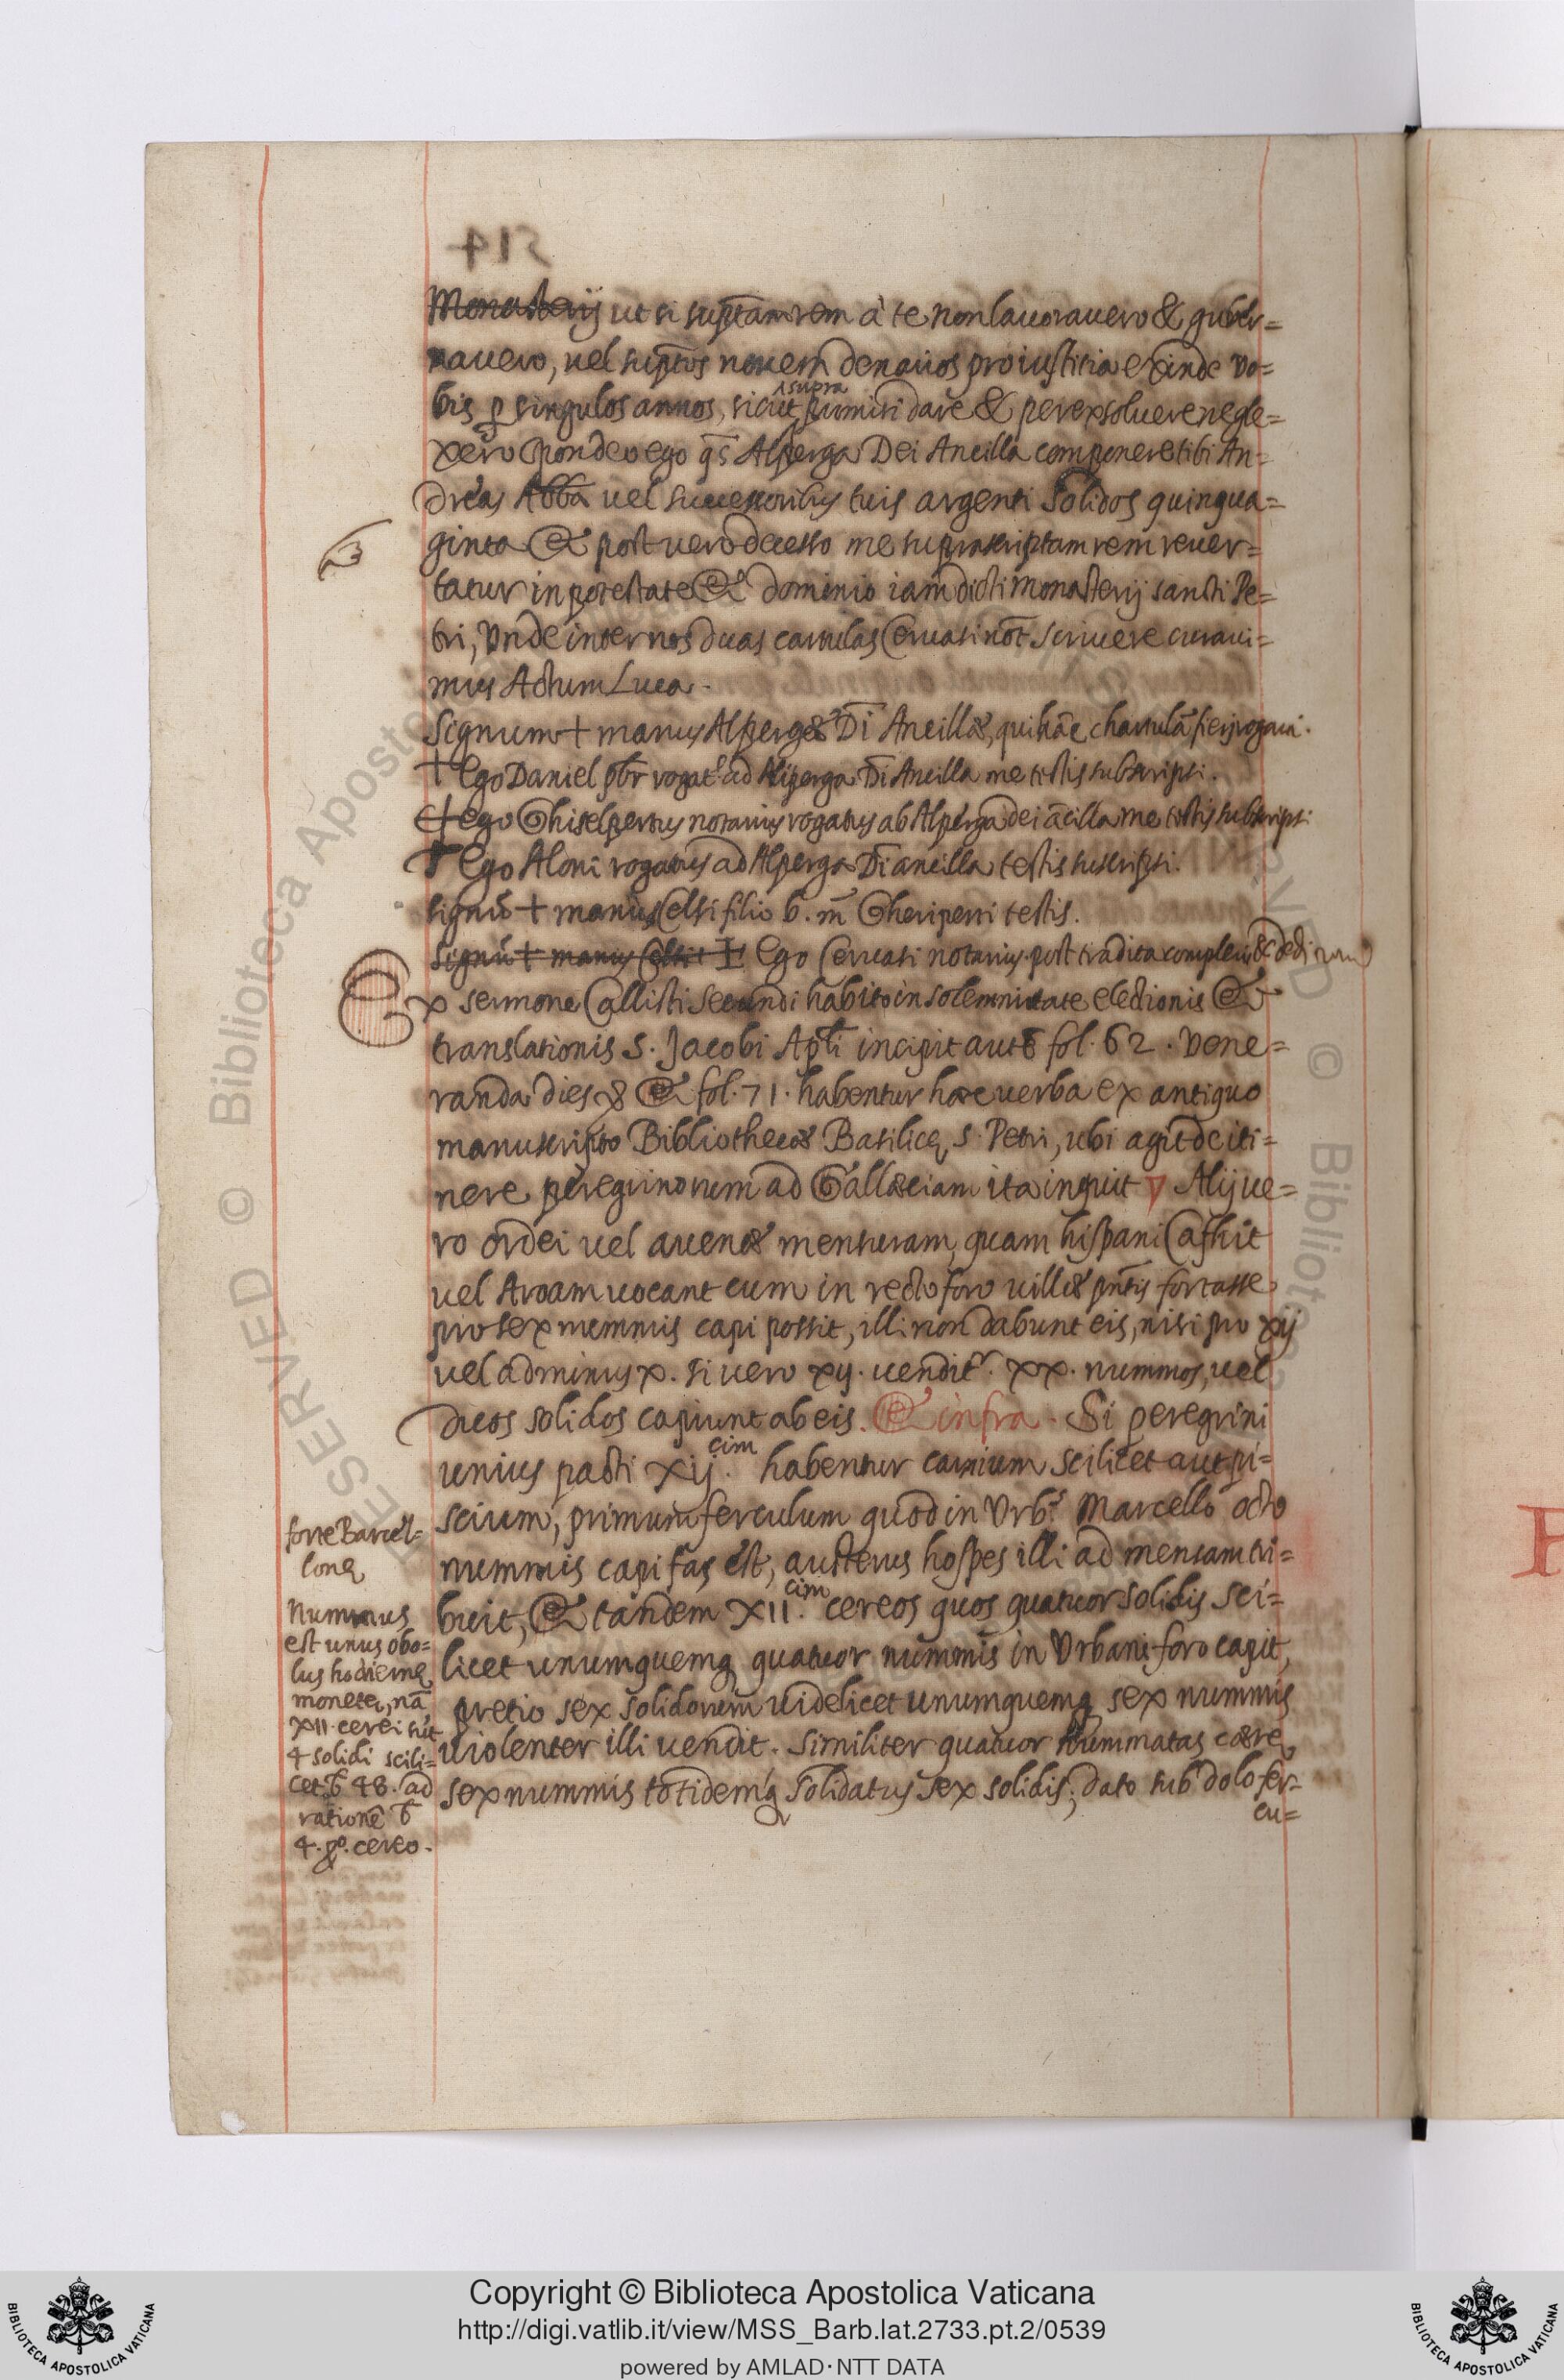 Monasterij ut si suptam rem à te non lavoravero & guber=
navero, vel suptos novem denarios pro iustitia exinde vo=
bis p singulos annos, sicut supra pumisi dare & perexsolvere negle=
xero spondeo ego qs Alperga Dei Ancilla componere tibi An=
dreas Abba vel successoribus tuis argenti solidos quinqua=
ginta & post vero decesso me suprascriptam rem rever=
tatur in potestate & dominio iam dicti Monasterij sancti Pe=
tri, Unde inter nos duas cartulas Ervasi not scrivere curavi=
mus Actum Luca.
Signum + manus Alpergæ Di Ancillæ, qui hāc chartulā fieri rogavi.
+ Ego Daniel pbr rogat' ad Alperga Di Ancilla me testis subscripsi.
+ ego Ghiselpertus notarius rogatus ab Alperga dei ācilla me testis subscripsi
+ Ego Aloni rogatus ad Alperga Di ancilla testis suscripsi.
signū + manus Celsi filio b. m̄ Gheriperti testis.
Signū + manus Celsi + Ego Ervasi notarius post tradita complevi & dedi
Ex sermone Callisti Secundi habito in solemnitate electionis &
translationis S. Jacobi Apli incipit autē fol. 62. Vene=
randa dies & fol. 71. habentur hæc verba ex antiquo
manuscripto Bibliothecæ Basilicę S. Petri, ubi agit de iti=
nere peregrinorum ad Gallæciam ita inquit Alij ve=
ro ordei vel avenæ mensuram, quam hispani Cafhit
vel Aroam vocant cum in recto foro villæ pntis fortasse
pro sex nummis capi possit, illi non dabunt eis, nisi pro xij
vel ad minus x. si vero xij. vendit. xx. nummos, vel
duos solidos capiunt ab eis. & infra. Si peregrini
unius pacti xij.cim habentur carnium scilicet aut pi=
scium, primum ferculum quod in Urb. Marcello octo
nummis capi fas est, austerus hospes illi ad mensam tri=
buit, & tandem XII.cim cereos quos quatuor solidis sci=
licet unumquemq quatuor nummis in Urbani foro capit,
pretio sex solidorum videlicet unumquemq sex nummis
violenter illi vendit. Similiter quatuor nummatas cære
sex nummis totidemq́ solidatus sex solidis; dato sub dolo fer=
cu=
forte Barcel=
lonę
nummus
est unus obo=
lus hodiernę
monetę, nā
XII. cerei sūt
4 solidi scili=
cet 48. ad
rationē
4. p. cereo.
Copyright © Biblioteca Apostolica Vaticana
http://digi.vatlib.it/view/MSS_Barb.lat.2733.pt.2/0539
powered by AMLAD·NTT DATA
BIBLIOTECA APOSTOLICA VATICANA
BIBLIOTECA APOSTOLICA VATICANA